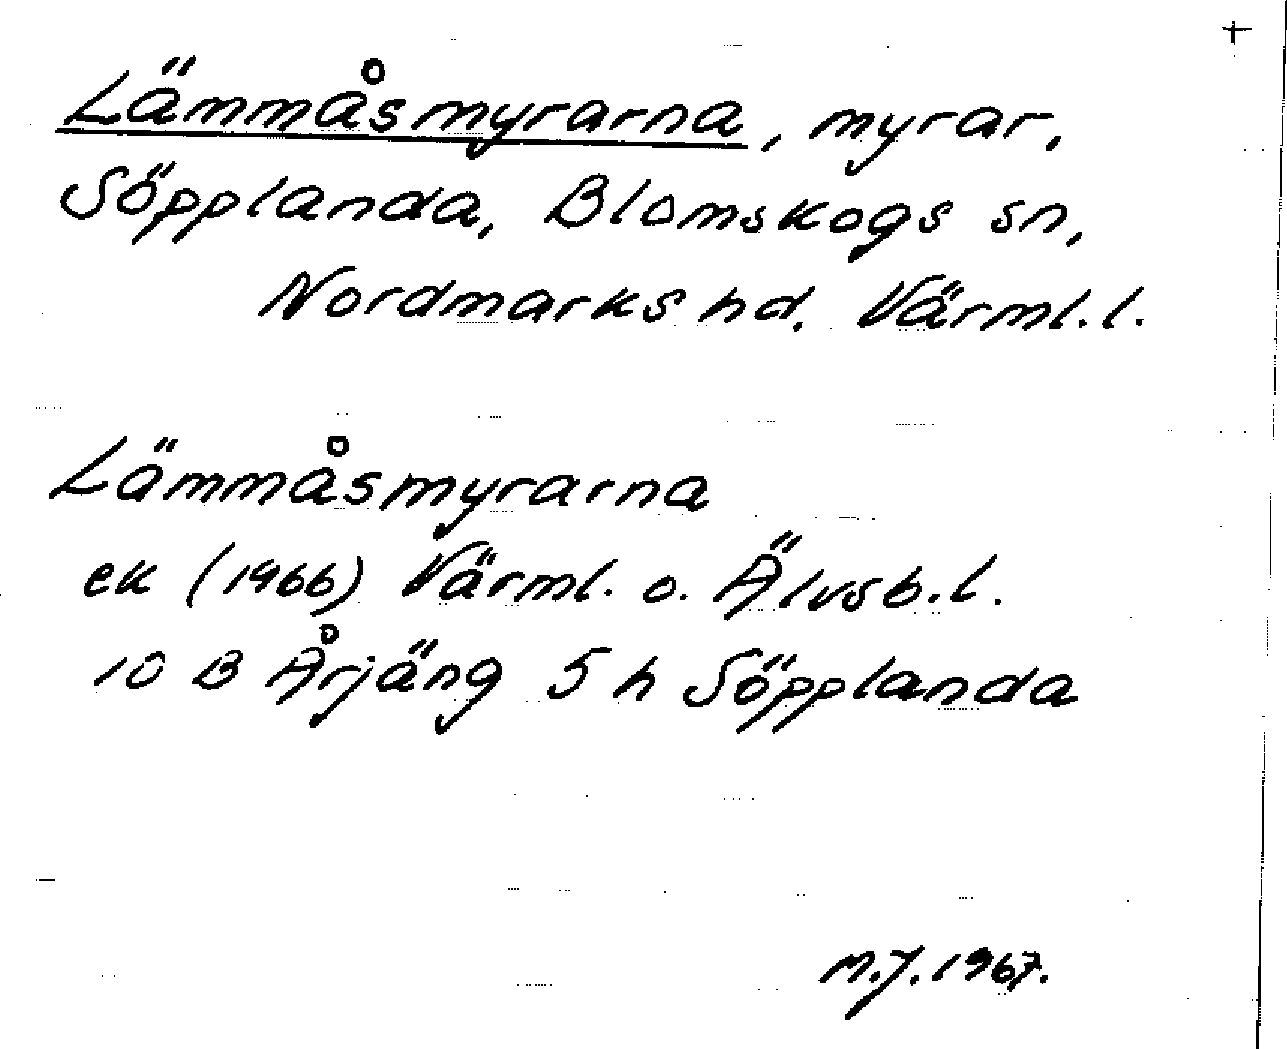 +
Lämmåsmyrarna, myrar,
Söpplanda, Blomskogs sn,
Nordmarks hd. Värml. l.
Lämmåsmyrarna
ek (1966) Värml. o. Älvsb. l.
10 B Årjäng 5 h Söpplanda
M.J. 1967.